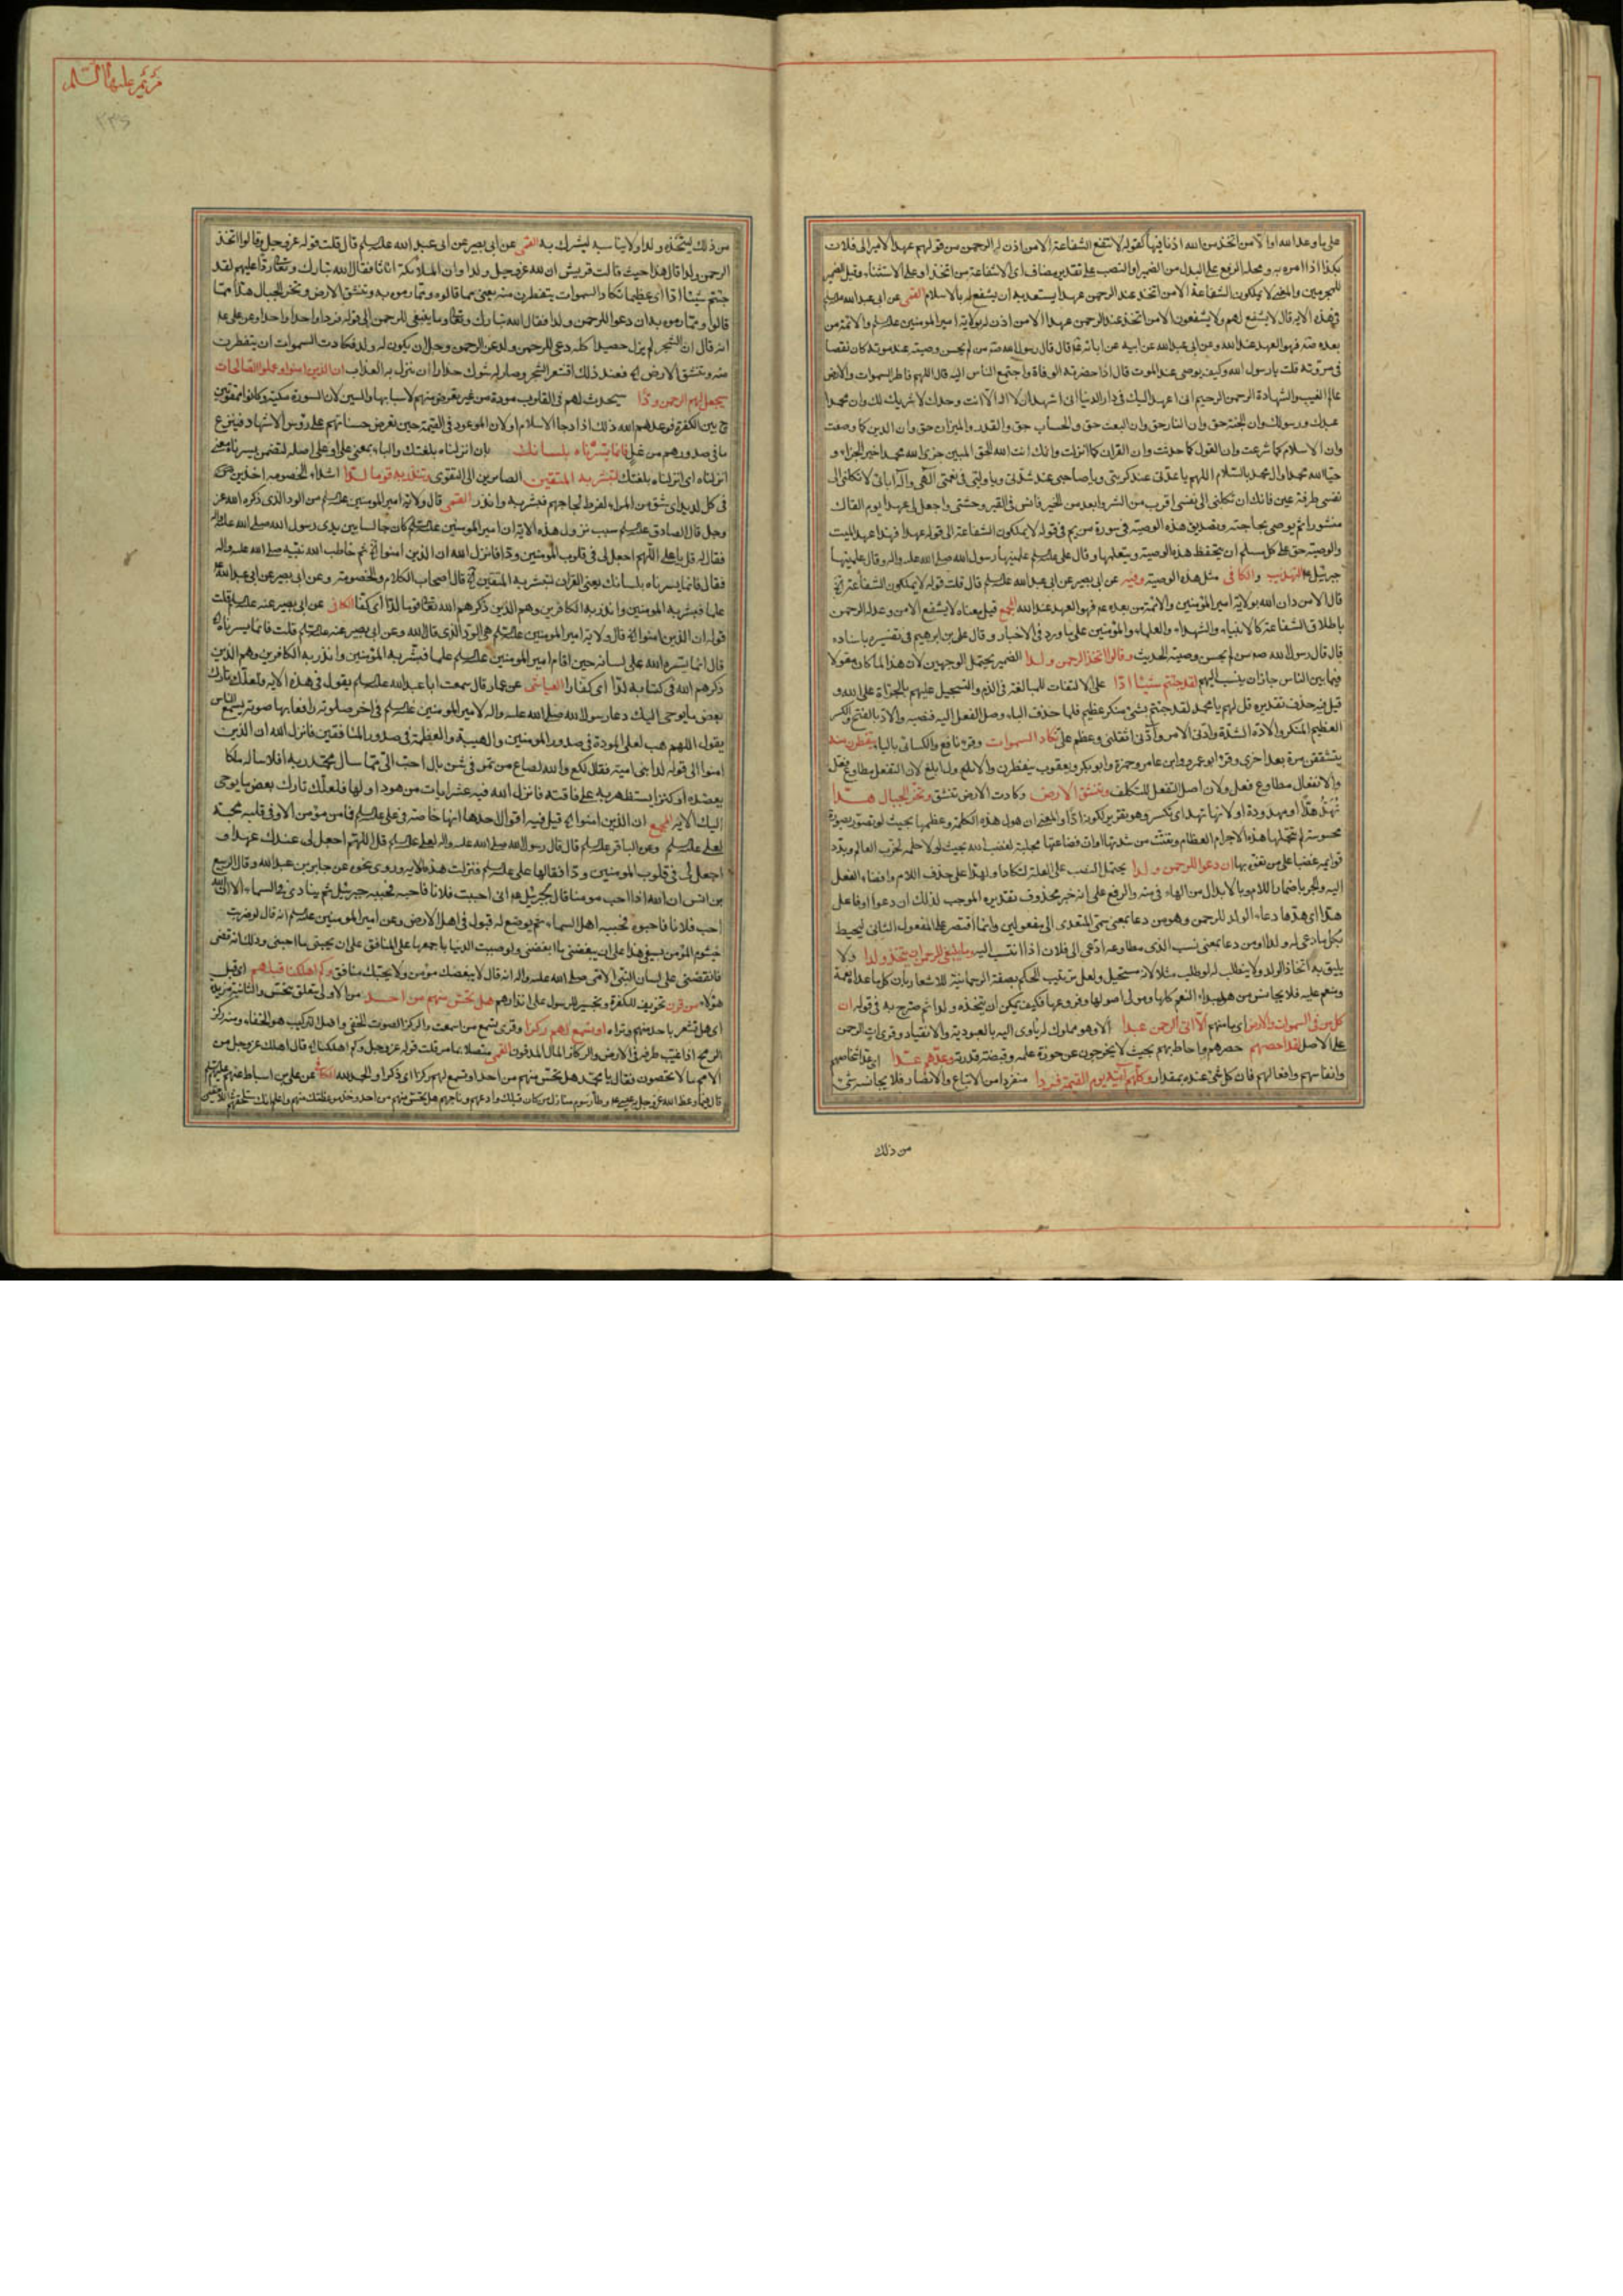 على ما وعد الله او الا من اتخذ من الله اذنا فيها كقوله لا تنفع الشفاعة الا من اذن له الرحمن من قولهم عهد الامير الى فلان
بكذا اذا امره به ومحله الرفع على البدل من الضمير او النصب على تقدير مضاف اى الا شفاعة من اتخذ او على الاستثناء وقيل الضمير
للمجرمين والمعنى لا يملكون الشفاعة الا من اتخذ عند الرحمن عهدا يستعد به ان يشفع له بالاسلام القمى عن ابى عبد الله
فى هذه الاية قال لا يشفع لهم ولا يشفعون الا من اتخذ عند الرحمن عهدا الا من اذن له بولاية امير المومنين والائمة من
بعده فهو العهد عند الله وعن ابى عبد الله عن ابيه عن ابائه قال قال رسول الله من لم يحسن وصيته عند موته كان نقصا
فى مروته قلت يا رسول الله وكيف يوصى عند الموت قال اذا حضرته الوفاة واجتمع الناس اليه قال اللهم فاطر السموات والارض
عالم الغيب والشهادة الرحمن الرحيم انى اعهد اليك فى دار الدنيا انى اشهد ان لا اله الا انت وحدك لا شريك لك وان محمدا
عبدك ورسولك وان الجنة حق وان النار حق وان البعث حق والحساب حق والقدر والميزان حق وان الدين كما وصفت
وان الاسلام كما شرعت وان القول كما حدثت وان القران كما انزلت وانك انت الله الحق المبين جزى الله محمدا خير الجزاء و
حيا الله محمدا وال محمد بالسلام اللهم يا عدتى عند كربتى ويا صاحبى عند شدتى ويا وليى فى نعمتى الهى واله ابائى لا تكلنى الى
نفسى طرفة عين فانك ان تكلنى الى نفسى اقرب من الشر وابعد من الخير فانس فى القبر وحشتى واجعل لى عهدا يوم القاك
منشورا ثم يوصى بحاجته وتصديق هذه الوصية فى سورة مريم فى قوله لا يملكون الشفاعة الى قوله عهدا فهذا عهد الميت
والوصية حق على كل مسلم ان يحفظ هذه الوصية ويتعلمها وقال على علمنيها رسول الله صلى الله عليه واله وقال علمنيها
جبرئيل التهذيب والكافى مثل هذه الوصية وفيه عن ابى بصير عن ابى عبد الله قال قلت قوله لا يملكون الشفاعة
قال الا من دان الله بولاية امير المؤمنين والائمة من بعده فهو العهد عند الله المجمع قيل معناه لا يشفع الا من وعد له الرحمن
باطلاق الشفاعة كالانبياء والشهداء والعلماء والمؤمنين على ما ورد فى الاخبار وقال على بن ابرهيم فى تفسيره باسناده
قال قال رسول الله من لم يحسن وصيته الحديث وقالوا اتخذ الرحمن ولدا الضمير يحتمل الوجهين لان هذا لما كان مقولا
فيما بين الناس جاز ان ينسب اليهم لقد جئتم شيئا ادا على الالتفات للمبالغة فى الذم والتسجيل عليهم بالجراة على الله و
قيل فيه حذف تقديره قل لهم يا محمد لقد جئتم بشئ منكر عظيم فلما حذف الباء وصل الفعل اليه فنصبه والاد بالفتح والكسر
العظيم المنكر والادة الشدة وادنى الامر وآدنى اثقلنى وعظم على تكاد السموات وقرء نافع والكسائى بالياء يتفطرن منه
يتشققن مرة بعد اخرى وقرء ابو عمرو وابن عامر وحمزة وابو بكر ويعقوب ينفطرن والاول ابلغ لان التفعل مطاوع فعل
والانفعال مطاوع فعل ولان اصل التفعل للتكلف وتنشق الارض وكادت الارض تنشق وتخر الجبال هدا
تهد هدا او مهدودة او لانها تهد اى تكسر وهو تقرير لكونه ادا والمعنى ان هول هذه الكلمة وعظمها بحيث لو تصور بصورة
محسوسة لم تتحملها هذه الاجرام العظام وتفتت من شدتها او ان فضاعتها مجلبة لغضب الله بحيث لولا حلمه لخرب العالم وبدد
قوايمه غضبا على من تفوه بها ان دعوا للرحمن ولدا يحتمل النصب على العلة لتكاد او لهدا على حذف اللام وافضاء الفعل
اليه والجر باضمار اللام وبالابدال من الهاء فى منه والرفع على انه خبر محذوف تقديره الموجب لذلك ان دعوا او فاعل
هدا اى هدها دعاء الولد للرحمن وهو من دعا بمعنى سمى المتعدى الى مفعولين وانما اقتصر على المفعول الثانى ليحيط
بكل ما دعى له ولدا او من دعا بمعنى نسب الذى مطاوعه ادعى الى فلان اذا انتسب اليه وما ينبغى للرحمن ان يتخذ ولدا ولا
يليق به اتخاذ الولد ولا ينطلب له لو طلب مثلا لانه مستحيل ولعل ترتيب الحكم بصفة الرحمانية للاشعار بان كل ما عداه نعمة
ومنعم عليه فلا يجانس من هو مبداء النعم كلها ومولى اصولها وفروعها فكيف يمكن ان يتخذه ولدا ثم صرح به فى قوله ان
كل من فى السموات والارض اى ما منهم الا اتى الرحمن عبدا الا وهو مملوك له ياوى اليه بالعبودية والانقياد وقرئ ات الرحمن
على الاصل لقد احصيهم حصرهم واحاط بهم بحيث لا يخرجون عن حوزة علمه وقبضة قدرته وعدهم عدا اى عد اشخاصهم
وانفاسهم وافعالهم فان كل شئ عنده بمقدار وكلهم اتيه يوم القيمة فردا منفردا من الاتباع والانصار فلا يجانسه شئ
من ذلك
مريم عليها السلم
من ذلك ليتخذه ولدا ولا يناسبه ليشرك به القمى عن ابى بصير عن ابى عبد الله قال قلت قوله عز وجل وقالوا اتخذ
الرحمن ولدا قال هذا حيث قالت قريش ان لله عز وجل ولدا وان الملائكة اناثا فقال الله تبارك وتعالى ردا عليهم لقد
جئتم شيئا ادا اى عظيما تكاد السموات يتفطرن منه يعنى مما قالوه ومما رموه به وتنشق الارض وتخر الجبال هدا مما
قالوا ومما رموه به ان دعوا للرحمن ولدا فقال الله تبارك وتعالى وما ينبغى للرحمن الى قوله فردا واحدا واحدا وعن على
انه قال ان الشجر لم يزل حصيدا كله دعى للرحمن ولد عز الرحمن وجل ان يكون له ولد فكادت السموات ان يتفطرن
منه وتنشق الارض فعند ذلك اقشعر الشجر وصار له شوك حذارا ان ينزل به العذاب ان الذين امنوا وعملوا الصالحات
سيجعل لهم الرحمن ودا سيحدث لهم فى القلوب مودة من غير تعرض منهم لاسبابها والسين لان السورة مكية وكانوا ممقوتين
ح بين الكفرة فوعدهم الله ذلك اذا دجا الاسلام او لان الموعود فى القيمة حين تعرض حسناتهم على رؤس الاشهاد فينزع
ما فى صدورهم من غل فانما يسرناه بلسانك بان انزلناه بلغتك والباء بمعنى على او على اصله لتضمن يسرناه معنى
انزلناه اى انزلناه بلغتك لتبشر به المتقين الصايرين الى التقوى وتنذر به قوما لدا اشداء الخصومة اخذين
فى كل لديد اى شق من المراء لفرط لجاجهم فبشر به وانذر القمى قال ولاية امير المومنين من الود الذى ذكره الله عز
وجل قال الصادق سبب نزول هذه الاية ان امير المومنين كان جالسا بين يدى رسول الله صلى الله عليه واله
فقال له قل يا على اللهم اجعل لى فى قلوب المومنين ودا فانزل الله ان الذين امنوا ثم خاطب الله نبيه صلى الله عليه واله
فقال فانما يسرناه بلسانك يعنى القران لتبشر به المتقين قال اصحاب الكلام والخصومة وعن ابى بصير عن ابى عبد الله
علما فبشر به المومنين وانذر به الكافرين وهم الذين ذكرهم الله تعالى قوما لدا اى كفا الكافى عن ابى بصير عنه قلت
قوله ان الذين امنوا قال ولاية امير المومنين هى الود الذى قال الله وعن ابى بصير عنه قلت فانما يسرناه
قال انما يسره الله على لسانه حين اقام امير المومنين علما فبشر به المؤمنين وانذر به الكافرين وهم الذين
ذكرهم الله فى كتابه لدا اى كفارا العياشى عن عمار قال سمعت ابا عبد الله يقول فى هذه الاية فلعلك تارك
بعض ما يوحى اليك دعا رسول الله صلى الله عليه واله لامير المومنين فى اخر صلوته رافعا بها صوته يسمع الناس
يقول اللهم هب لعلى المودة فى صدور المومنين والهيبة والعظمة فى صدور المنافقين فانزل الله ان الذين
امنوا الى قوله لدا بنى امية فقال لكع والله لصاع من تمر فى شن بال احب الى مما سال محمد ربه افلا ساله ملكا
يعضده او كنزا يستظهر به على فاقته فانزل الله فيه عشر ايات من هود اولها فلعلك تارك بعض ما يوحى
اليك الاية المجمع ان الذين امنوا قيل فيه اقوال احدها انها خاصة فى على فما من مؤمن الا وفى قلبه محبة
لعلى وعن الباقر قال قال رسول الله صلى الله عليه واله لعلى قل اللهم اجعل لى عندك عهدا و
اجعل لى فى قلوب المومنين ودا فقالها على فنزلت هذه الاية وروى نحوه عن جابر بن عبد الله وقال الربيع
بن انس ان الله اذا احب مومنا قال لجبرئيل انى احببت فلانا فاحبه فيحبه جبرئيل ثم ينادى فى السماء الا ان الله
احب فلانا فاحبوه فيحبه اهل السماء ثم يوضع له قبول فى اهل الارض وعن امير المومنين انه قال لو ضربت
خيشوم المؤمن بسيفى هذا على ان يبغضنى ما ابغضنى ولو صببت الدنيا بجمها على المنافق على ان يحبنى ما احبنى وذلك انه قضى
فانقضى على لسان النبى الامى صلى الله عليه واله انه قال لا يبغضك مؤمن ولا يحبك منافق وكم اهلكنا قبلهم اى قبل
هؤلاء من قرن تخويف للكفرة وتجسير للرسول على انذارهم هل تحس منهم من احد من الاولى يتعلق بتحس والثانية مزيدة
اى هل تشعر باحد منهم وتراه او تسمع لهم ركزا وقرى تسمع من اسمعت والركز الصوت الخفى واصل التركيب هو الخفاء ومنه ركز
الرمح اذا غيب طرفه فى الارض والركاز المال المدفون القمى متصلا بما مر قلت قوله عز وجل وكم اهلكنا قال اهلك عز وجل من
الامم ما لا يحصون فقال يا محمد هل تحس منهم من احد او تسمع لهم ركزا اى ذكرا والحمد لله الكافى عن على بن اسباط عنهم
قال فيما وعظ الله عز وجل به عيسى وطأ رسوم منازل من كان قبلك وادعهم وناجهم هل تحس منهم من احد وخذ موعظتك منهم واعلم انك ستلحقهم